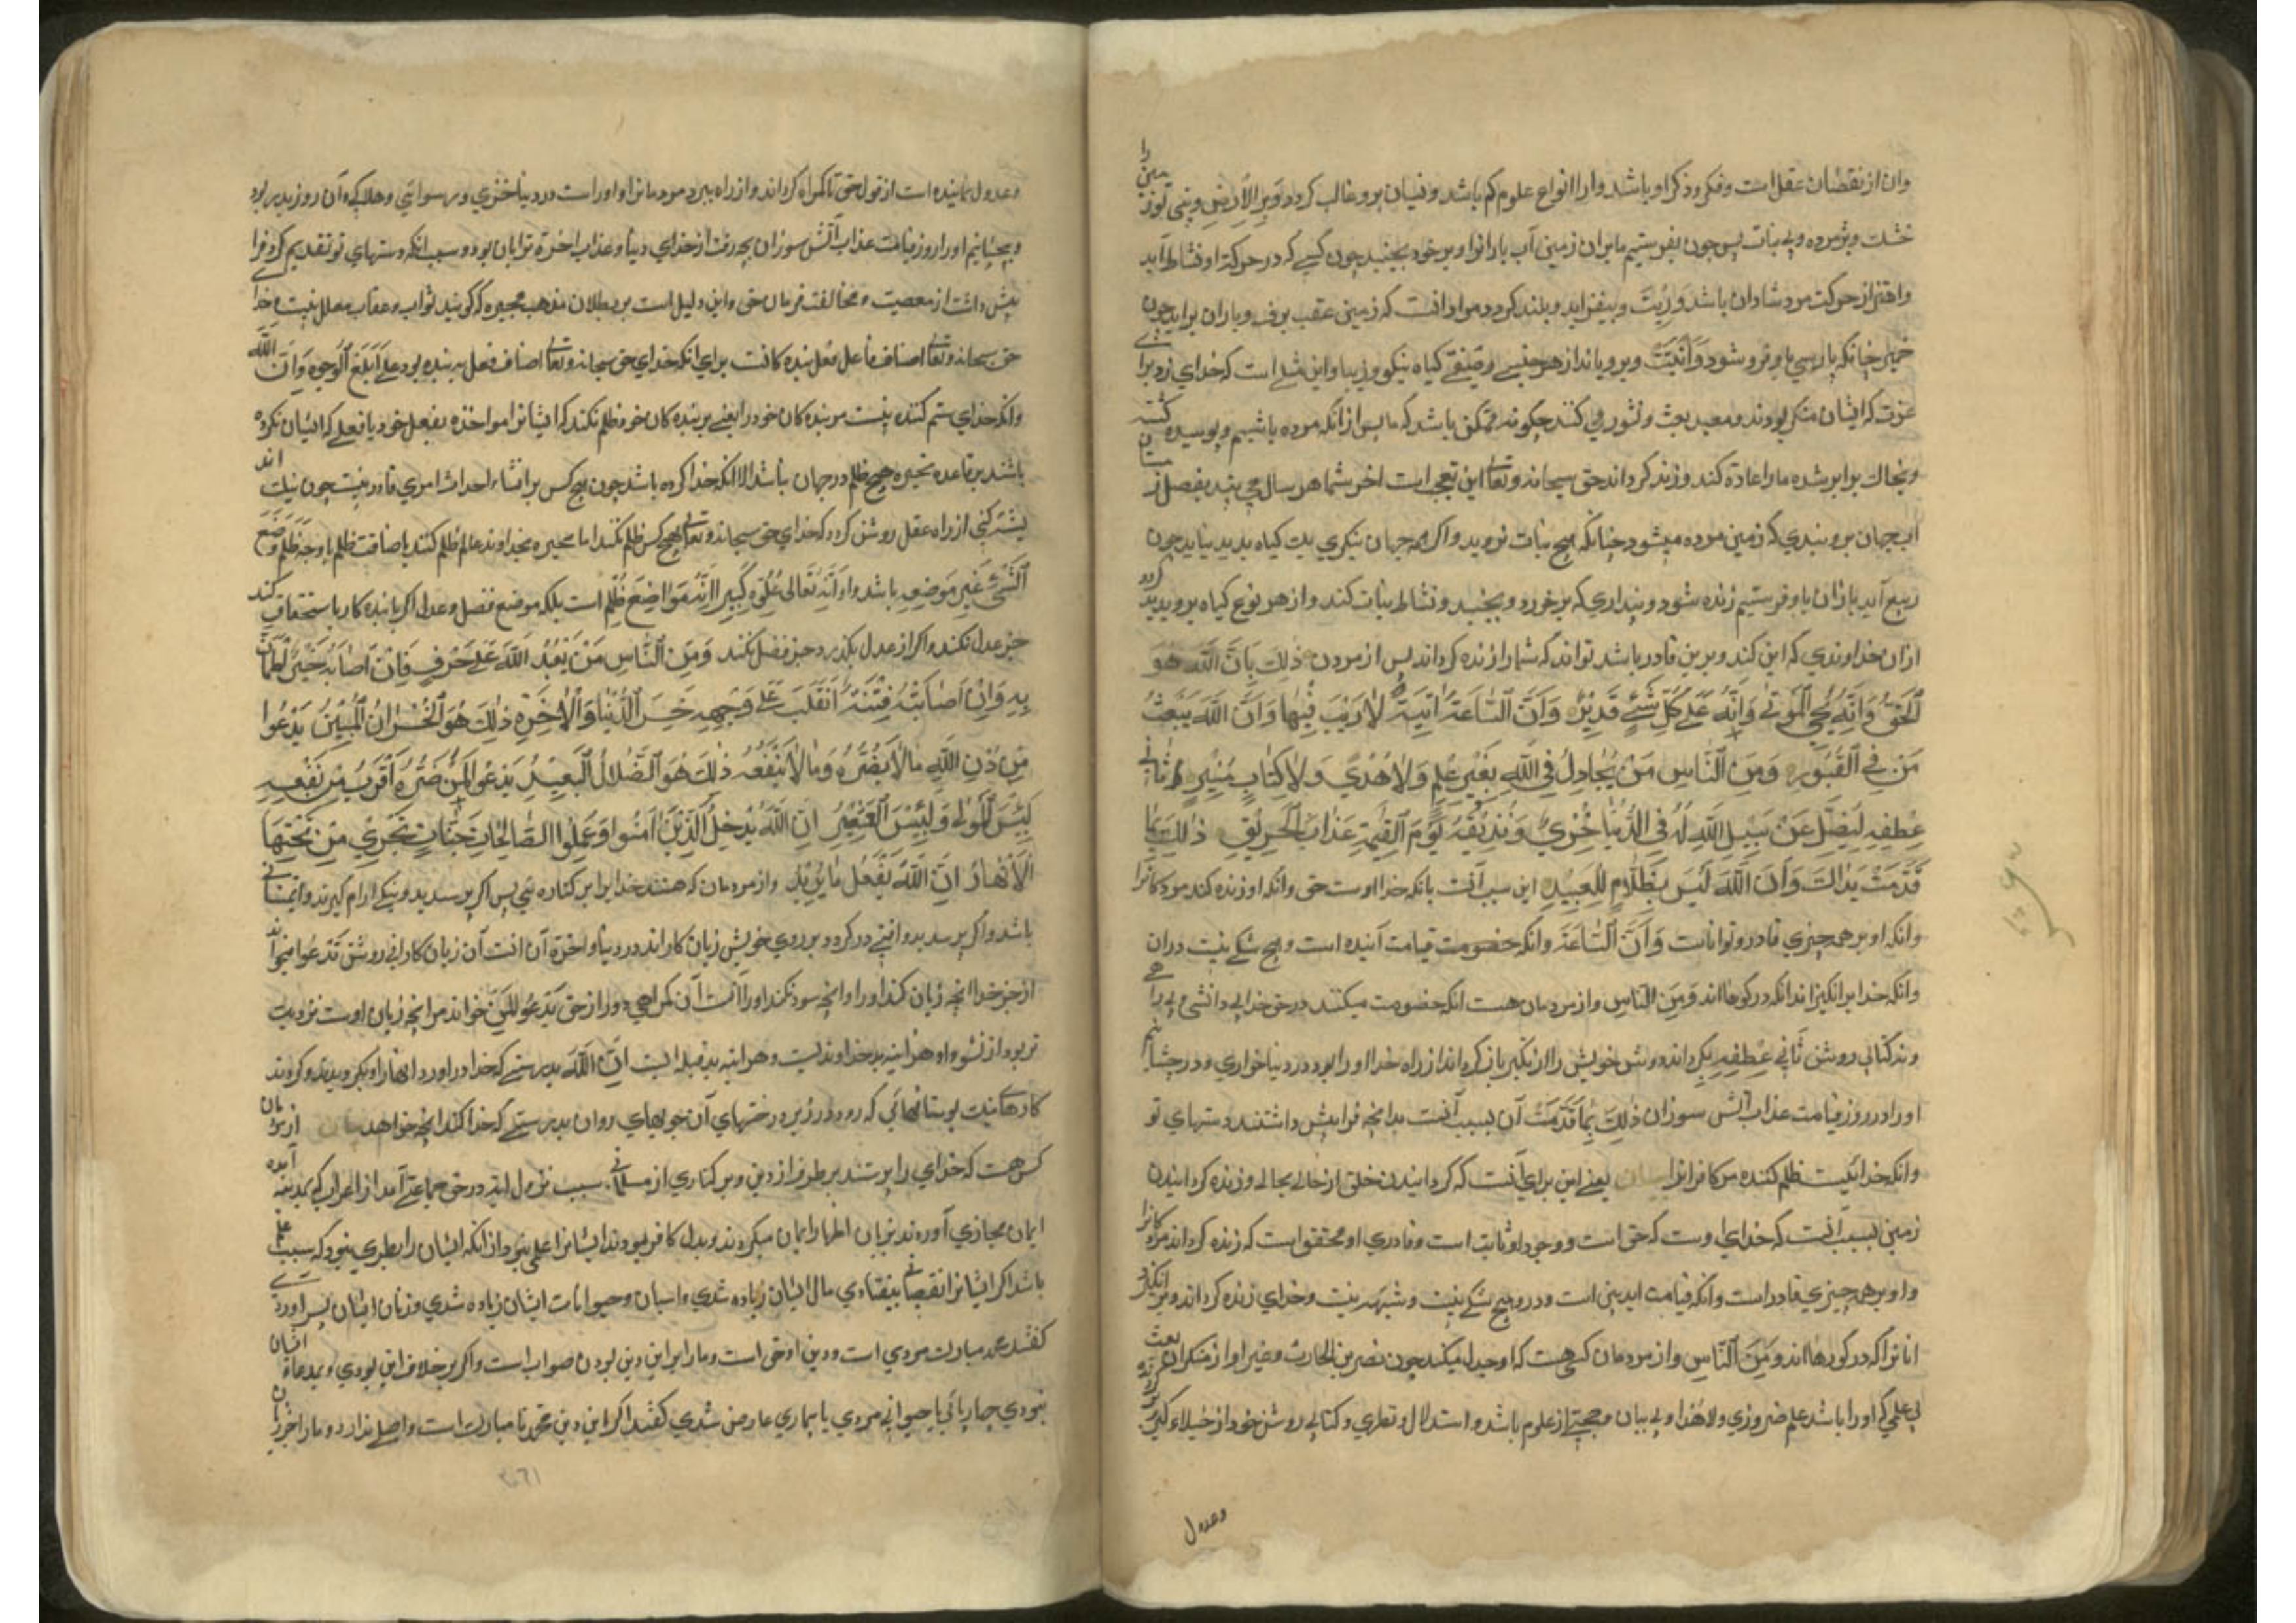 وان از نقصان عقل است وفکر وذکر او باشد واو را انواع علوم کم باشد ونسیان برو غالب کردد وَتَرَی الاَرضَ وبینی تو زمین را
خشک وپژمرده وبی نبات پس چون بفرستیم ما بران زمین آب باران او بر خود بجنبد چون کسی که در حرکة او نشاط آید
واهتزاز حرکت مرد شادان باشد وَرَبَتْ وبیفزاید وبلند کردد مراد آنست که زمین عقب برف وباران براید چون
خمیر چنانکه پارسی یاو فرو شود وَاَنْبَتَتْ وبرویاند از هر جنسی وصنفی کیاه نیکو وزیبا واین مثلی است که خدای زد برای
عرب که ایشان منکر بودند ومعید بعث ونشور می کنند چکونه ممکن باشد که ما پس از انکه مرده باشیم وپوسیده کشته
وبخاک برابر شده ما را اعادة کند وزنده کرداند حق سبحانه وتعالی این تعجب است اخر شما هر سال می بینید بفصل زمستان
این جهان برو بنبدی که زمین مرده میشود چنانکه هیچ نبات نروید واکر همه جهان بنکری یک کیاه پدید نیاید چون
ربیع آید باران باو فرستیم زنده شود وپنداری که بر خورد وبجنبد ونشاط نبات کند واز هر نوع کیاه بروید پدید کردد
ازان خداوندی که این کند وبرین قادر باشد تواند که شما را زنده کرداند پس از مردن ذٰلِكَ بِاَنَّ اللّٰهَ هُوَ
الْحَقُّ وَاَنَّهُ يُحْيِ الْمَوْتٰى وَاَنَّهُ عَلٰى كُلِّ شَيْءٍ قَدِيْرٌ وَاَنَّ السَّاعَةَ اٰتِيَةٌ لَارَيْبَ فِيْهَا وَاَنَّ اللّٰهَ يَبْعَثُ
مَنْ فِي الْقُبُوْرِ وَمِنَ النَّاسِ مَنْ يُجَادِلُ فِي اللّٰهِ بِغَيْرِ عِلْمٍ وَلَا هُدًى وَلَا كِتَابٍ مُنِيْرٍ ثَانِيَ
عِطْفِهِ لِيُضِلَّ عَنْ سَبِيْلِ اللّٰهِ لَهُ فِي الدُّنْيَا خِزْيٌ وَنُذِيْقُهُ يَوْمَ الْقِيٰمَةِ عَذَابَ الْحَرِيْقِ ذٰلِكَ بِمَا
قَدَّمَتْ يَدَاكَ وَاَنَّ اللّٰهَ لَيْسَ بِظَلَّامٍ لِلْعَبِيْدِ این سبب آنست بانکه خدا اوست حق وانکه او زنده کند مردکانرا
وانکه او بر همه چیزی قادر وتواناست وَاَنَّ السَّاعَةَ وانکه خصومت قیامت آینده است وهیچ شکی نیست دران
وانکه خدا برانکیزاند انکه در کورها اند وَمِنَ النَّاسِ واز مردمان هست انکه خصومت میکنند در حق خدا بی دانشی وبی راهی
ونه کتابی روشن ثَانِيَ عِطْفِهِ بکرداند دوش خویش را از تکبر باز کرداند از راه خدا او را بود در دنیا خواری ودر چشانیم
او را در روز قیامت عذاب آتش سوزان ذٰلِكَ بِمَا قَدَّمَتْ آن بسبب آنست بدانچه فرا پیش داشتند دستهای تو
وانکه خدا نیست ظلم کننده مر کافرانرا یعنی این برای آنست که کردانیدن خلق از حالی بحالی وزنده کردانیدن
زمین بسبب آنست که خدای اوست که حق است ووجود او ثابت است وقادری او محقق است که زنده کرداند مردکانرا
واو بر همه چیزی قادر است وانکه قیامت آمدنی است ودرو هیچ شکی نیست وشبهه نیست وخدای زنده کرداند وبرانکیزد
انانرا که در کورها اند وَمِنَ النَّاسِ واز مردمان کس هست که او جدل میکند چون نضر بن الحارث وغیر او از منکران بعث
بی علمی که او را باشد علم ضروری ولا هُدًا وبی بیان وحجتی از علوم باشد واستدلال ونظری وکتابی روشن خود از خیلاء وکبر
وعدول
وعدول نماینده است از قول حق تا کمراه کرداند واز راه ببرد مردمانرا واو راست در دنیا خزی ورسوایی وهلاکی وآن روز بدر بود
وبچشانیم او را روز قیامت عذاب آتش سوزان بچه رفت از خدای دنیا وعذاب اخرة ترا بان بود وسبب انکه دستهای تو تقدیم کرد وفرا
پیش داشت از معصیت ومخالفت فرمان حق واین دلیل است بر بطلان مذهب مجبره که کویند ثواب وعقاب معلل نیست وخدای
حق سبحانه وتعالی اضافت فاعل فعل بنده کانست برای انکه خدای حق سبحانه وتعالی اضافت فعل ببنده بود علی اَبْلَغِ الْوُجُوهِ وَاَنَّ اللّٰهَ
وانکه خدای ستم کننده نیست مر بنده کان خود را یعنی بر بنده کان خود ظلم نکند که ایشانرا مواخذه بفعل خود یا فعلی که ایشان نکرده
باشند بر قاعده مجبره هیچ ظلم در جهان نباشد الا انکه خدا کرده باشد چون هیچ کس بر انشاء احداث امری قادر نیست چون نیک اند
یشترکنی از راه عقل روشن کردد که خدای حق سبحانه وتعالی بهیچ کس ظلم نکند اما مجبره بخداوند عالم ظلم کنند باضافت ظلم باو چه ظلم وَضْع
الشَّیْءِ غَيْرِ مَوْضِعِهِ باشد واو اَنَّهُ تَعَالٰى عُلُوًّا كَبِيْرًا اِنَّهُ مَوَاضِعَ ظُلْمٍ است بلکه موضع فضل وعدل اکر با بنده کار باستحقاق کند
جز عدل نکند واکر از عدل بکذرد جز فضل نکند وَمِنَ النَّاسِ مَنْ يَعْبُدُ اللّٰهَ عَلٰى حَرْفٍ فَاِنْ اَصَابَهُ خَيْرٌ اطْمَأَنَّ
بِهِ وَاِنْ اَصَابَتْهُ فِتْنَةٌ انْقَلَبَ عَلٰى وَجْهِهِ خَسِرَ الدُّنْيَا وَالْاٰخِرَةِ ذٰلِكَ هُوَ الْخُسْرَانُ الْمُبِيْنُ يَدْعُوا
مِنْ دُوْنِ اللّٰهِ مَا لَا يَضُرُّهُ وَمَا لَا يَنْفَعُهُ ذٰلِكَ هُوَ الضَّلَالُ الْبَعِيْدُ يَدْعُوا لَمَنْ ضَرُّهُ اَقْرَبُ مِنْ نَفْعِهِ
لَبِئْسَ الْمَوْلٰى وَلَبِئْسَ الْعَشِيْرُ اِنَّ اللّٰهَ يُدْخِلُ الَّذِيْنَ اٰمَنُوْا وَعَمِلُوا الصَّالِحَاتِ جَنَّاتٍ تَجْرِيْ مِنْ تَحْتِهَا
الْاَنْهَارُ اِنَّ اللّٰهَ يَفْعَلُ مَا يُرِيْدُ واز مردمان که هستند خدا را بر کناره پس اکر برسد بدو نیکی ارام کیرند وایمنی
باشد واکر برسد بدو فتنه در کردد بر روی خویش زیان کار اند در دنیا واخرة آن آنست آن زیان کاری روشن تَدْعُوا میخواند
از جز خدا انچه زیان کند او را وانچه سود نکند او را آنست آن کمراهی دور از حق يَدْعُوا لَمَنْ خواند مر انچه زیان اوست نزدیک
تر بود از نفع او هراینه بد خداوندیست وهراینه بد قبیله ایست اِنَّ اللّٰهَ بدرستی که خدا در اورد انها را که بکرویدند وکردند
کارهاء نیک بوستانهایی که رود در زیر درختهای آن جویهای روان بدرستی که خدا کند انچه خواهد
کس هست که خدای را پرستند بر طرف از دین وبر کناری از مسلمانی سبب نزول ایة در حق جماعتی آمد از اعراب که بمدینه آمده
ایمان مجازی آورده بزبان اظهار ایمان میکردند وبدل کافر بودند ایشانرا علمی نبود از انکه ایشان را نظری نبود که سبب علم
باشد اکر ایشانرا نقصانی نیفتادی مال ایشان زیاده شدی واسپان وحیوانات ایشان زیاده شدی وزنان ایشان پسر اوردی
کفتند محمد مبارک مردی است ودین او حق است وما را بر این دین بودن صواب است واکر بر خلاف این بودی وبمدعاء ایشان
نبودی چهارپائی یا حیوانی مردی یا بیماری عارض شدی کفتند اکر این دین محمد نا مبارک است واصلی ندارد وما را جز زیان
۳۰۶۱